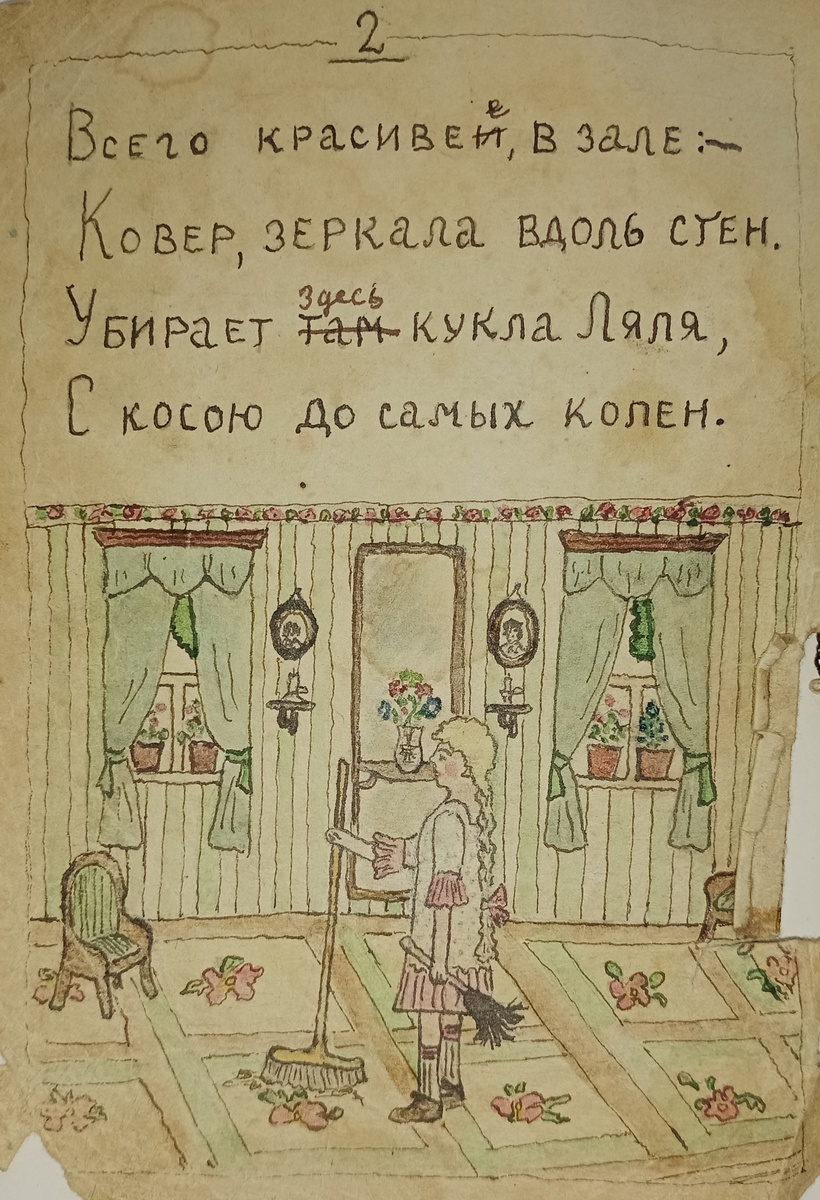 2
Всего красивее, в зале:—
Ковер, зеркала вдоль стен.
Убирает здесь там кукла Ляля,
С косою до самых колен.